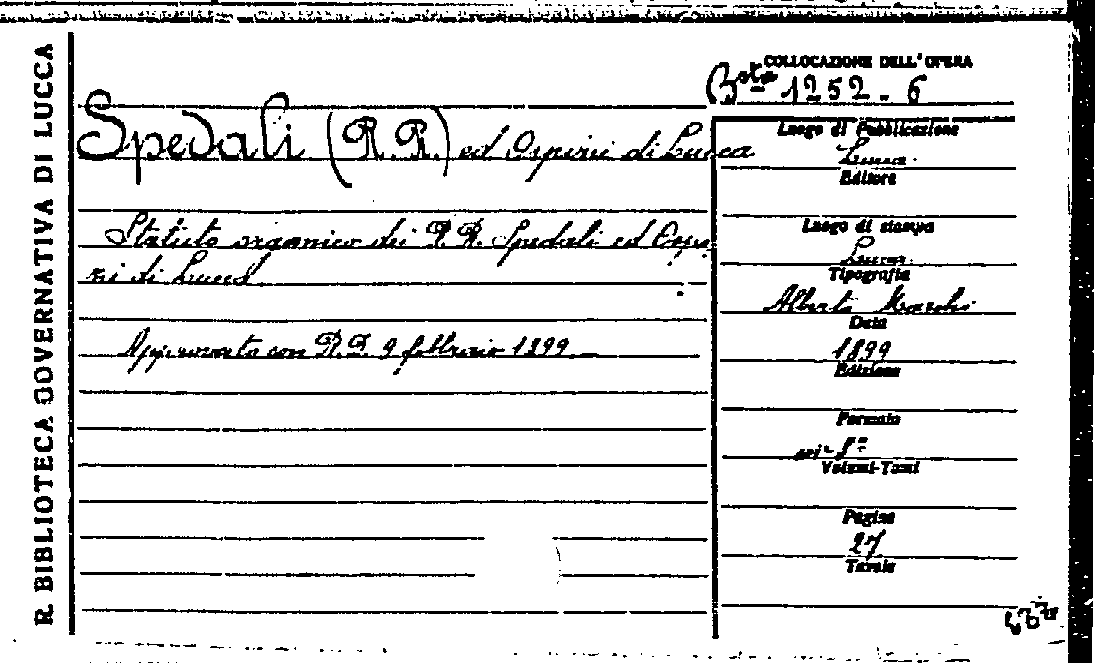 R. BIBLIOTECA GOVERNATIVA DI LUCCA
COLLOCAZIONE DELL'OPERA
Bsta 1252.6
Spedali (R.R.) ed Ospizi di Lucca
Statuto organico dei R.R. Spedali ed Ospi
zi di Lucca
Approvato con R.D. 9 febbraio 1899
Luogo di Pubblicazione
Lucca
Editore
Luogo di stampa
Lucca
Tipografia
Alberto Marchi
Data
1899
Edizione
Formato
in-8º
Volumi-Tomi
Pagine
27
Tavole